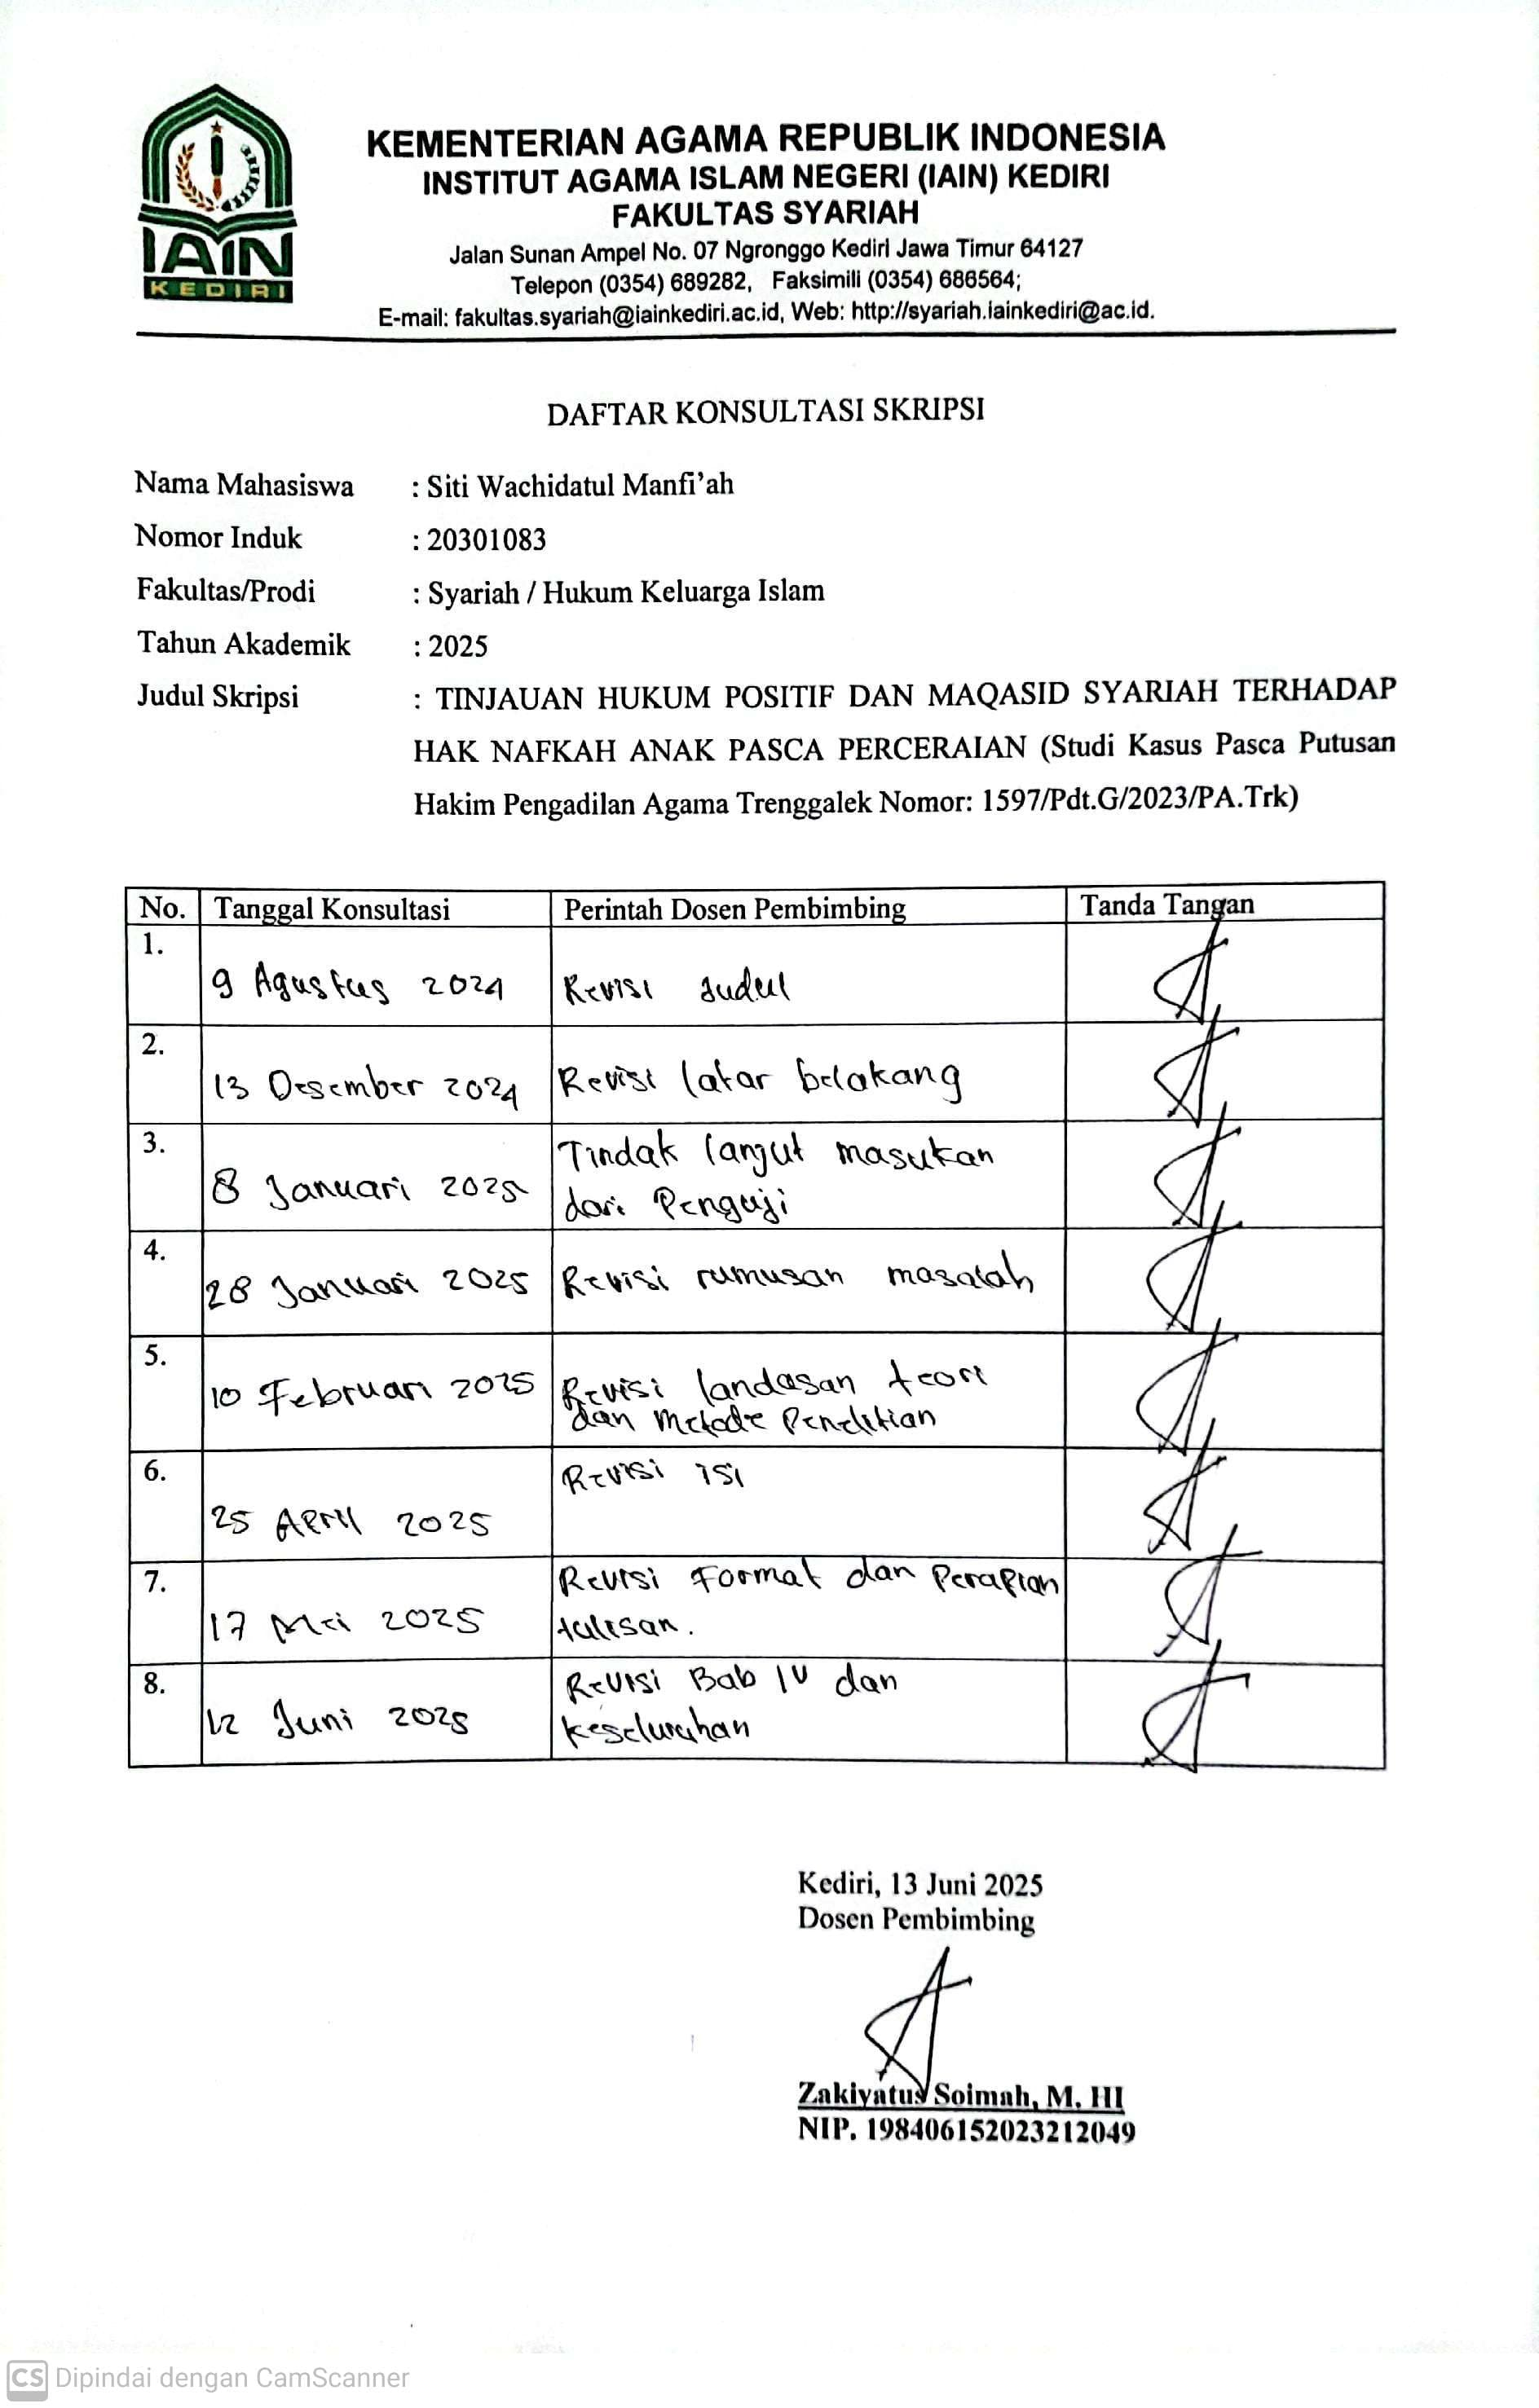 IAIN
KEDIRI
KEMENTERIAN AGAMA REPUBLIK INDONESIA
INSTITUT AGAMA ISLAM NEGERI (IAIN) KEDIRI
FAKULTAS SYARIAH
Jalan Sunan Ampel No. 07 Ngronggo Kediri Jawa Timur 64127
Telepon (0354) 689282, Faksimili (0354) 686564;
E-mail: fakultas.syariah@iainkediri.ac.id, Web: http://syariah.iainkediri@ac.id.
DAFTAR KONSULTASI SKRIPSI
Nama Mahasiswa : Siti Wachidatul Manfi’ah
Nomor Induk : 20301083
Fakultas/Prodi : Syariah / Hukum Keluarga Islam
Tahun Akademik : 2025
Judul Skripsi : TINJAUAN HUKUM POSITIF DAN MAQASID SYARIAH TERHADAP
HAK NAFKAH ANAK PASCA PERCERAIAN (Studi Kasus Pasca Putusan
Hakim Pengadilan Agama Trenggalek Nomor: 1597/Pdt.G/2023/PA.Trk)
No. Tanggal Konsultasi Perintah Dosen Pembimbing Tanda Tangan
1. 9 Agustus 2024 Revisi Judul
2. 13 Desember 2024 Revisi latar belakang
3. 8 Januari 2025 Tindak lanjut masukan
dari Penguji
4. 28 Januari 2025 Revisi rumusan masalah
5. 10 Februari 2025 Revisi landasan teori
dan Metode Penelitian
6. 25 April 2025 Revisi isi
7. 17 Mei 2025 Revisi Format dan Perapian
tulisan.
8. 12 Juni 2025 Revisi Bab IV dan
keseluruhan
Kediri, 13 Juni 2025
Dosen Pembimbing
Zakiyatus Soimah, M. HI
NIP. 198406152023212049
CS Dipindai dengan CamScanner